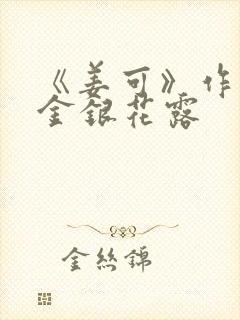 《姜可》作
金银花露
金丝锦